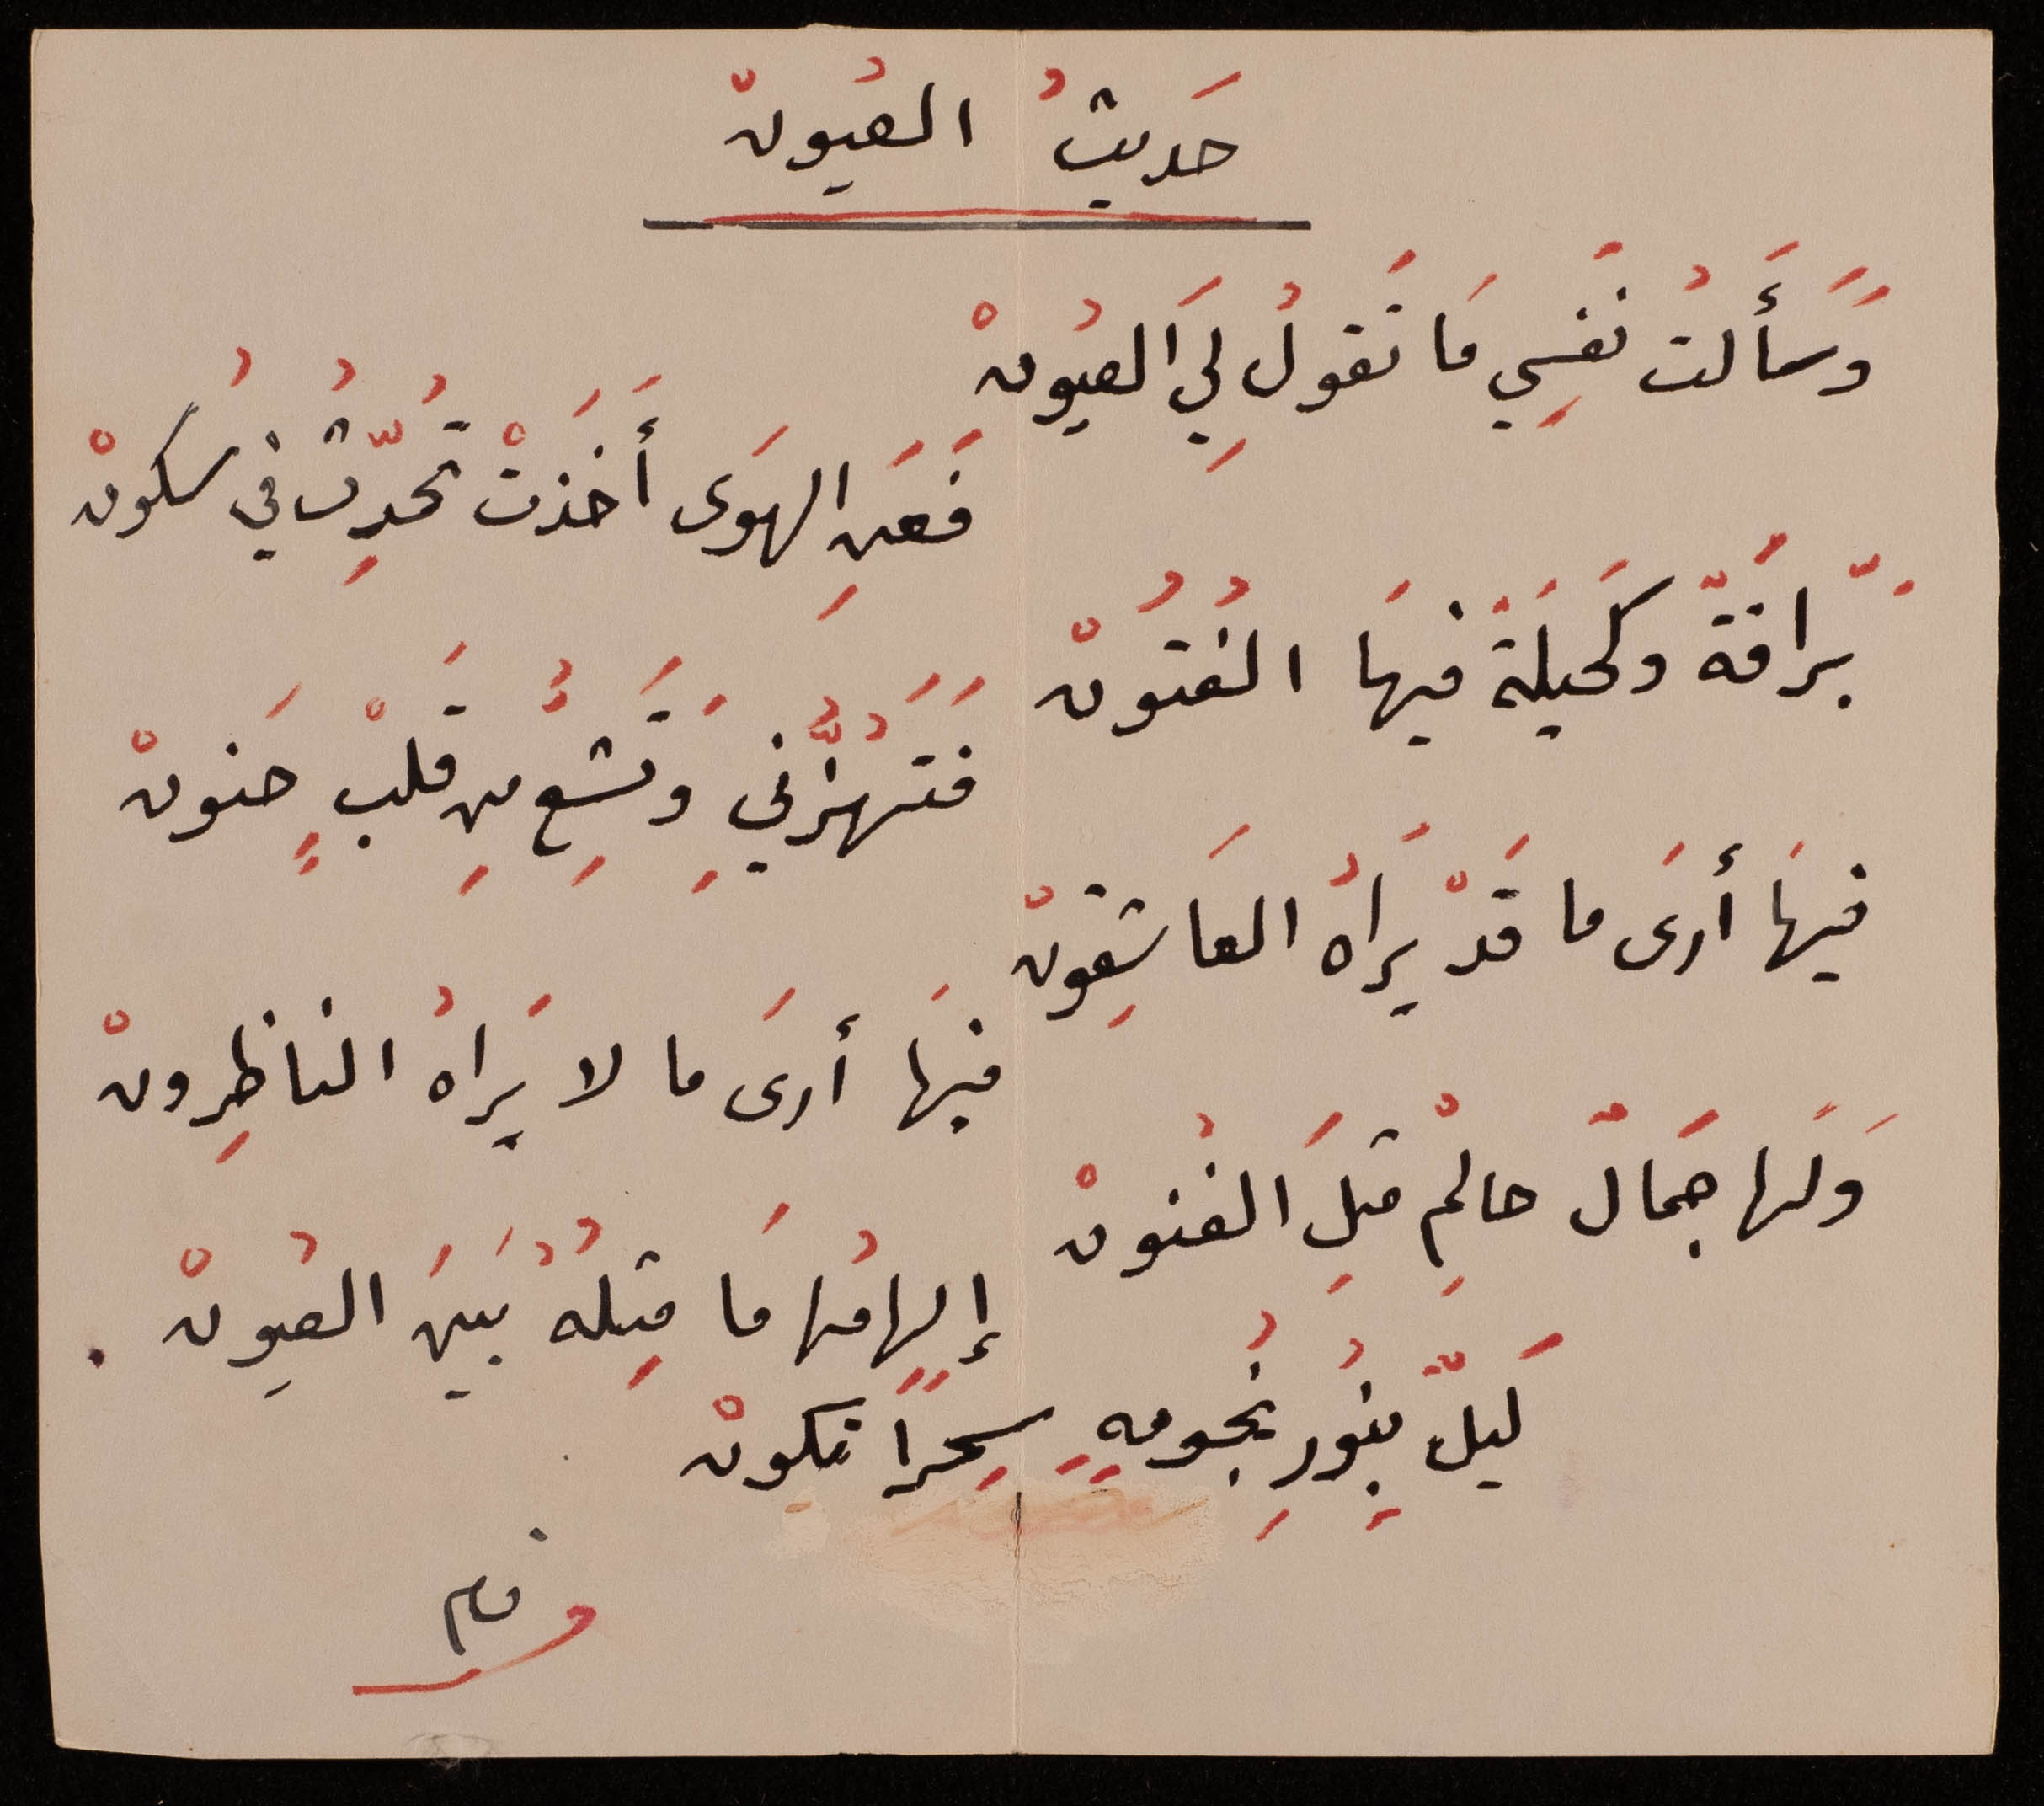 حَدِيثُ العُيونْ
وَسَأَلتُ نَفسِي مَا تَقولُ لِيَ العُيونْ
فَعَنِ الهَوَى أَخَذَتْ تُحَدِّثُ في سُكونْ
بَرّاقَةٌ وكَحيلَةٌ فيهَا الفُتُونْ
فَتَهُزُّني وَتَشِعُّ مِن قَلْبٍ حَنونْ
فيهَا أرَى ما قَدْ يَراهُ العَاشِقونْ
فيهَا أرَى ما لا يَراهُ الناظِرونْ
وَلَها جَمَالٌ حالِمٌ مِثلَ الفُنونْ
إلهامُها مَا مِثلُهُ بَينَ العُيونْ .
لَيلٌ بِنُورِ نُجُومِهِ سِحرًا تكونْ